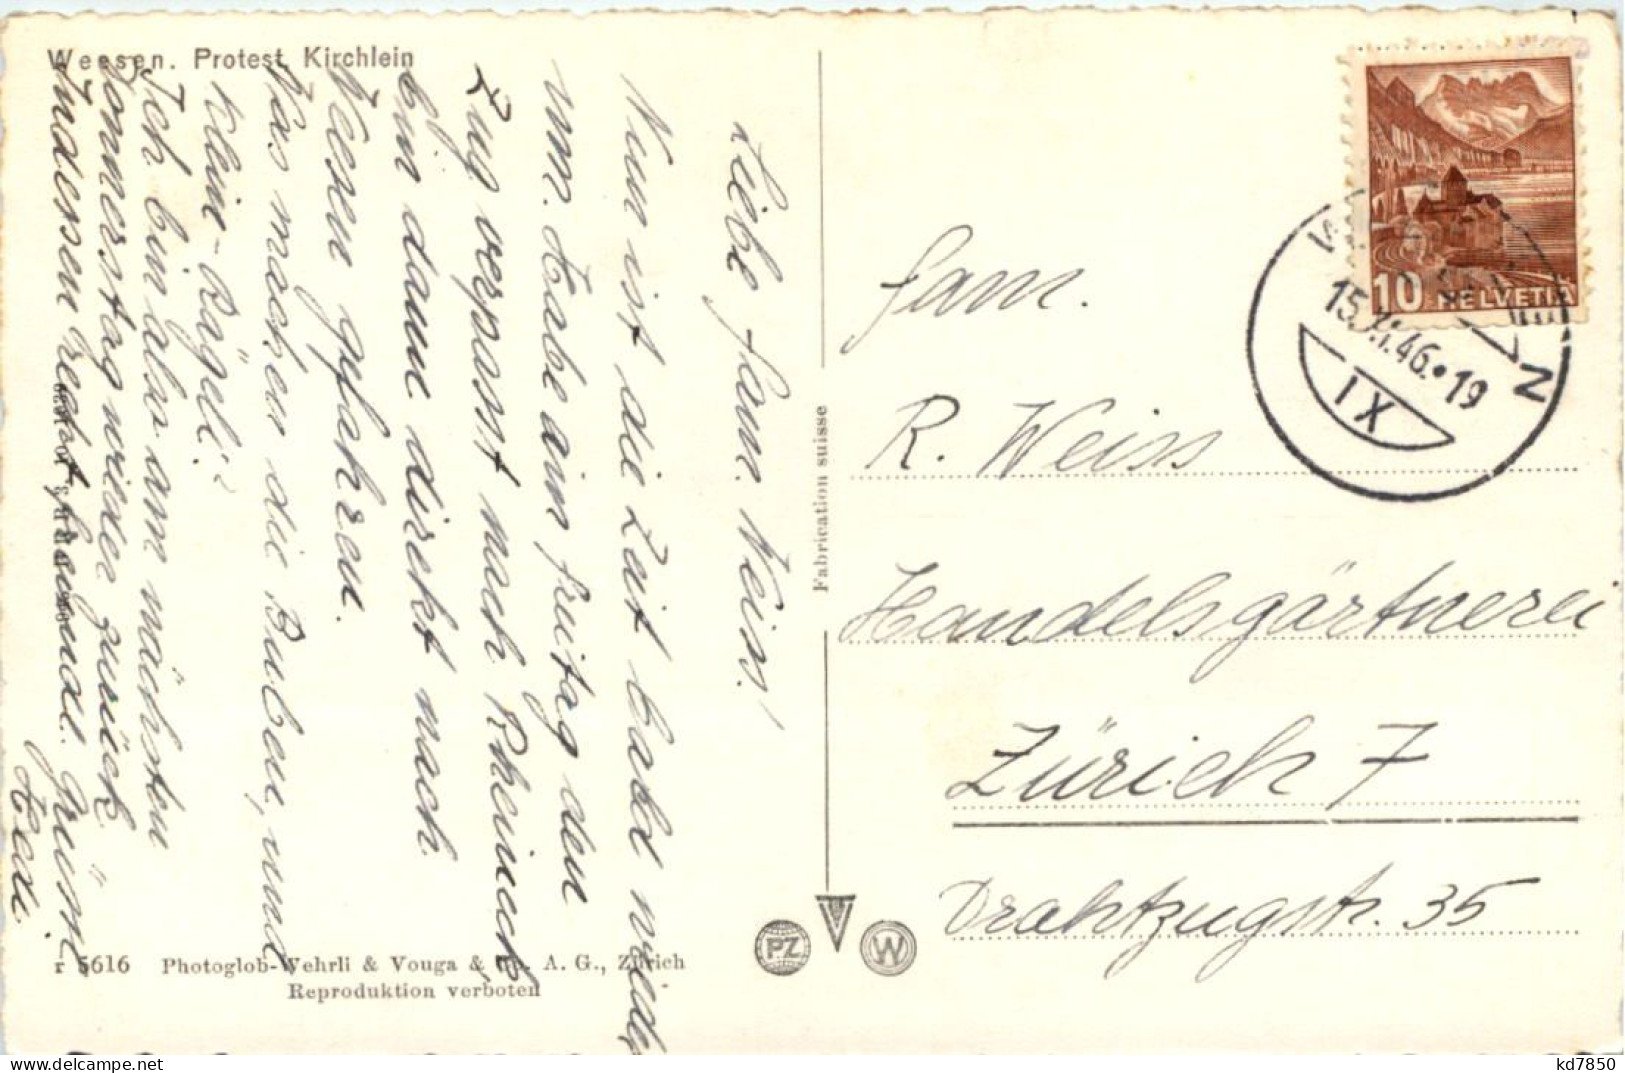 Weesen. Protest. Kirchlein
Liebe Fam. Weiss!
Nun ist die Zeit bald wieder
um. Habe am Freitag den
Zug verpasst nach Rheineck,
bin dann direkt nach
Wesen gfahren.
Was machen die Buben, und
klein-Rägeli?
Ich bin also am nächsten
Donnerstag wieder zurück.
Indessen recht freundl. Grüsse
Hedi.
r 5616 Photoglob-Wehrli & Vouga & Co. A. G., Zürich
Reproduktion verboten
Fabrication suisse
PZ
V
W
10 HELVETIA
15. 46.•19
IX
Fam.
R. Weiss
Handelsgärtnerei
Zürich 7
Drahtzugstr. 35
delcampe.net
kd7850